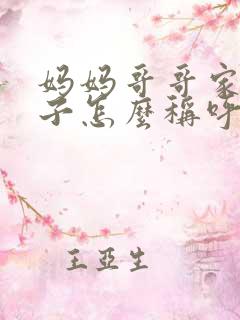 妈妈哥哥家
子怎麼稱呼
王亞生